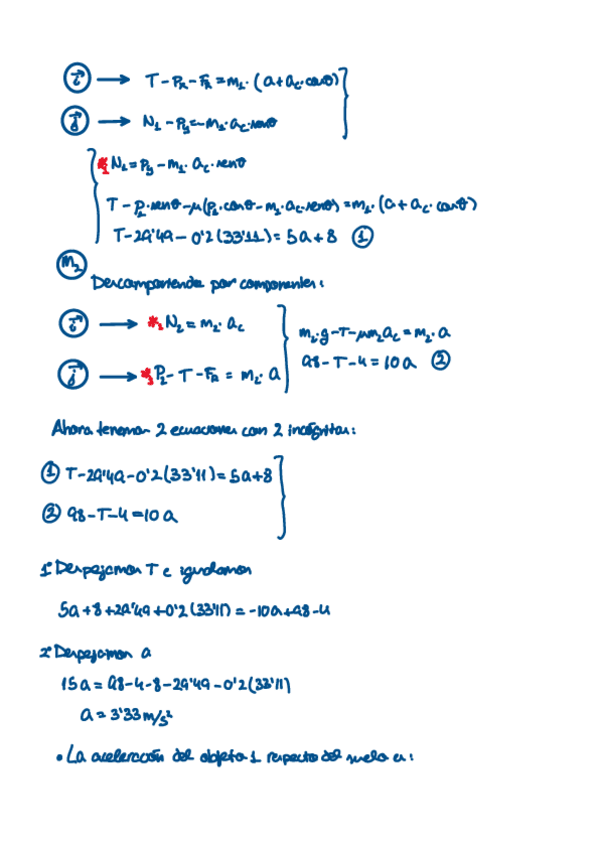 i → T - Px - FR = m1 · (a + ac · cosθ)
j → N1 - Py = -m1 · ac · senθ
*1 N1 = Py - m1 · ac · senθ
T - P1 · senθ - μ(P1 · cosθ - m1 · ac · senθ) = m1 · (a + ac · cosθ)
T - 29'49 - 0'2 (33'11) = 5a + 8 ①
m2
Descomponiendo por componentes:
i → *2 N2 = m2 · ac
m2 · g - T - μm2ac = m2 · a
j → *3 P2 - T - FR = m2 · a
98 - T - 4 = 10a ②
Ahora tenemos 2 ecuaciones con 2 incógnitas:
① T - 29'49 - 0'2 (33'11) = 5a + 8
② 98 - T - 4 = 10a
1º Despejamos T e igualamos
5a + 8 + 29'49 + 0'2 (33'11) = -10a + 98 - 4
2º Despejamos a
15a = 98 - 4 - 8 - 29'49 - 0'2 (33'11)
a = 3'33 m/s²
• La aceleración del objeto 1 respecto del suelo es: